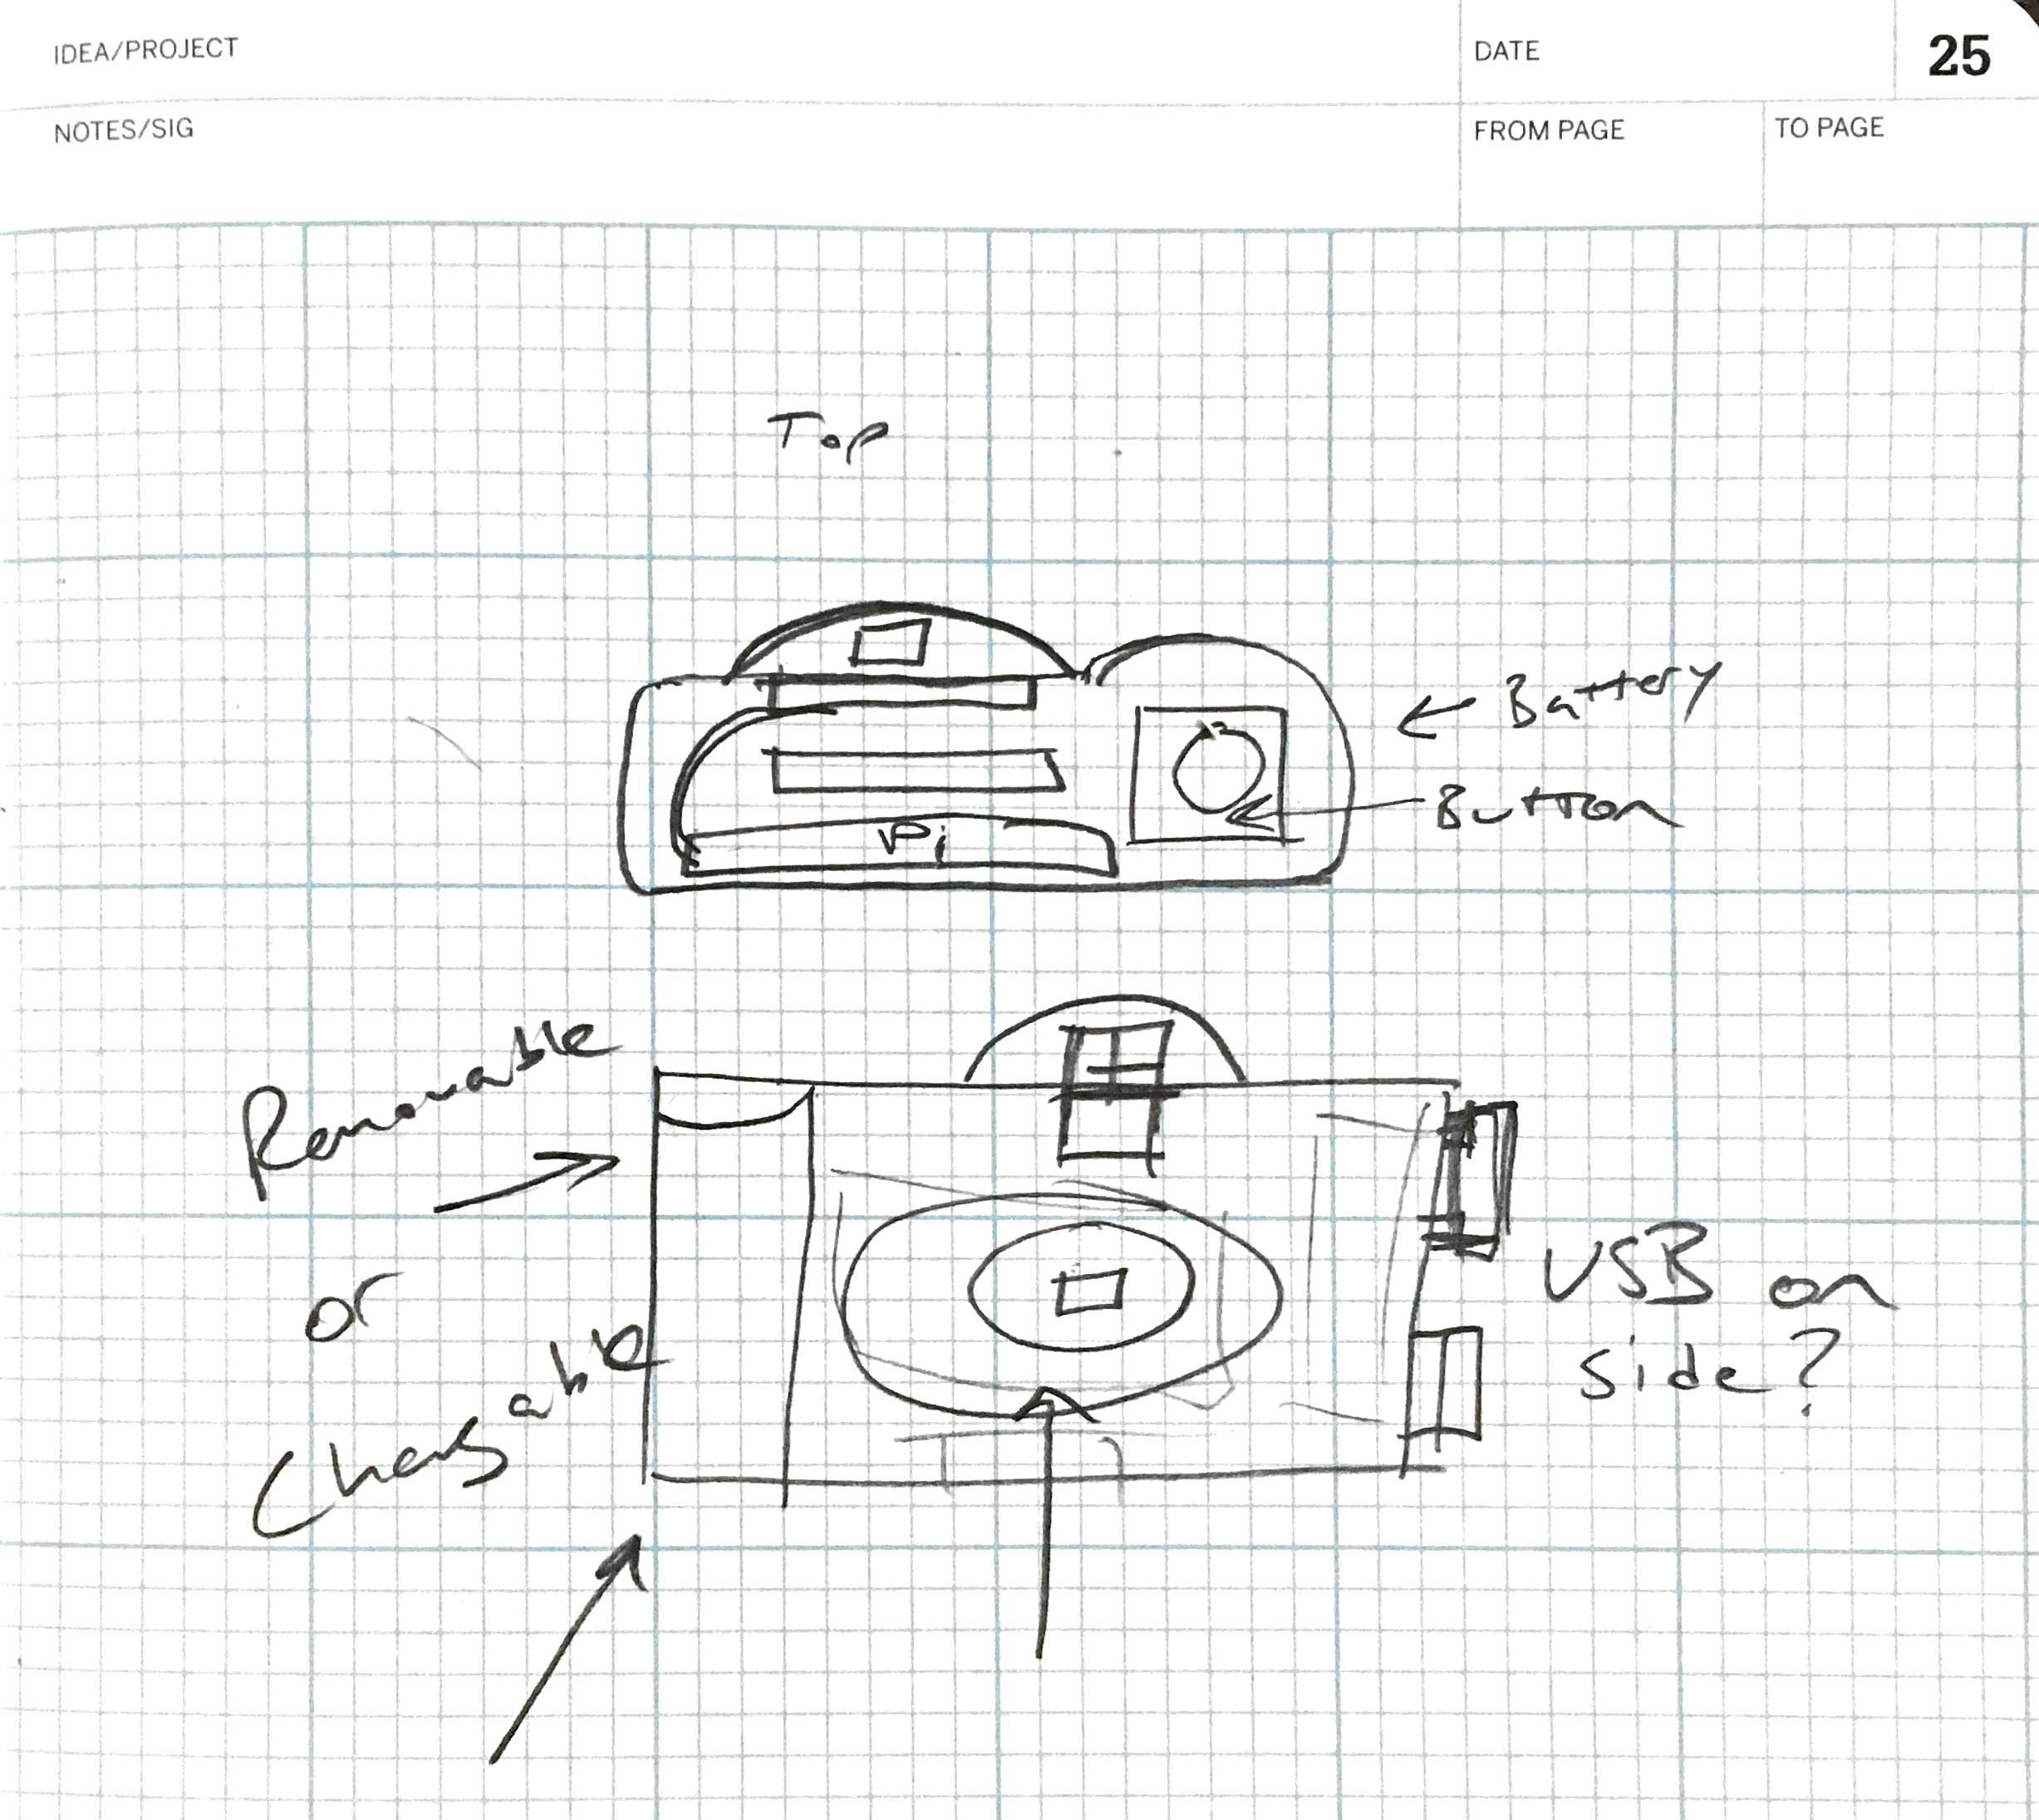 IDEA/PROJECT
DATE
25
NOTES/SIG
FROM PAGE
TO PAGE
Top
Battery
Button
Pi
Removable
or
Chargable
USB on
side?